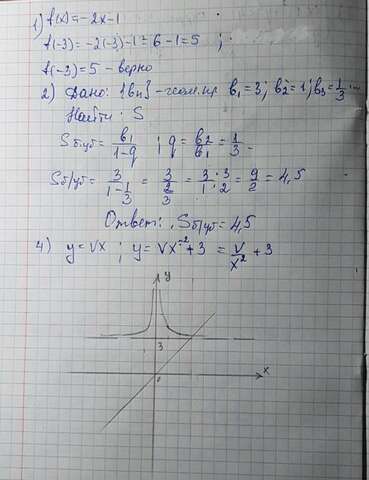 1) f(x)=-2x-1
f(-3)=-2(-3)-1=6-1=5 ;
f(-3)=5 - верно
2) Дано: {bn} - геом.пр b1=3; b2=1; b3=1/3 ...
Найти: S
Sб.уб= b1/(1-q) ; q= b2/b1 = 1/3
Sб/уб= 3/(1-1/3) = 3/(2/3) = 3·3/1·2 = 9/2 = 4,5
Ответ: Sб/уб=4,5
4) y=Vx ; y=Vx^-2+3 = V/x^2 +3
y
3
x
0